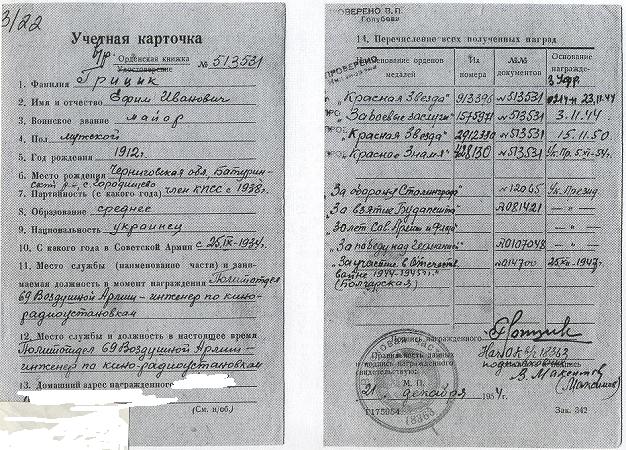 3/22
Учетная карточка
Орденская книжка
Удостоверение № 513531
1. Фамилия Грицик
2. Имя и отчество Ефим Иванович
3. Воинское звание майор
4. Пол мужской
5. Год рождения 1912г.
6. Место рождения Черниговская обл, Батурин-
ский р-н, с. Городищево
7. Партийность (с какого года) член КПСС с 1938г.
8. Образование среднее
9. Национальность украинец
10. С какого года в Советской Армии с 25/IX-1934г.
11. Место службы (наименование части) и зани-
маемая должность в момент награждения Политотдел
69 Воздушной Армии – инженер по кино-
радиоустановкам
12. Место службы и должность в настоящее время
Политотдел 69 Воздушной Армии –
инженер по кино-радиоустановкам
13. Домашний адрес награжденного
(См. н/об.)
ПРОВЕРЕНО В.П.
Голубева
14. Перечисление всех полученных наград
ПРОВЕРЕНО
Наименование орденов
медалей
Их
номера
№№
документов
Основание
награжде-
"Красная Звезда" 913396 №513531 23.11.44
"За боевые заслуги" 1575971 №513531 3.11.44
"Красная Звезда" 2912330 №513531 15.11.50
"Красное Знамя" №513531 Ук. Пр.
"За оборону Сталинград" №12065 Ук. Презид.
"За взятие Будапешта" А081421 — „ —
30 лет Сов. Армии и Флота — „ —
"За победу над Германией" 0107048 — „ —
"За участие в Отечеств.
войне 1944-1945гг." №014700 25/XII-1947г.
(Болгарская)
Подпись награжденного
Правильность данных
и подпись награжденного
свидетельствую:
подполковник
В. Максимов
(Максимов)
М. П.
21 декабря 1954 г.
Г175054 Зак. 342